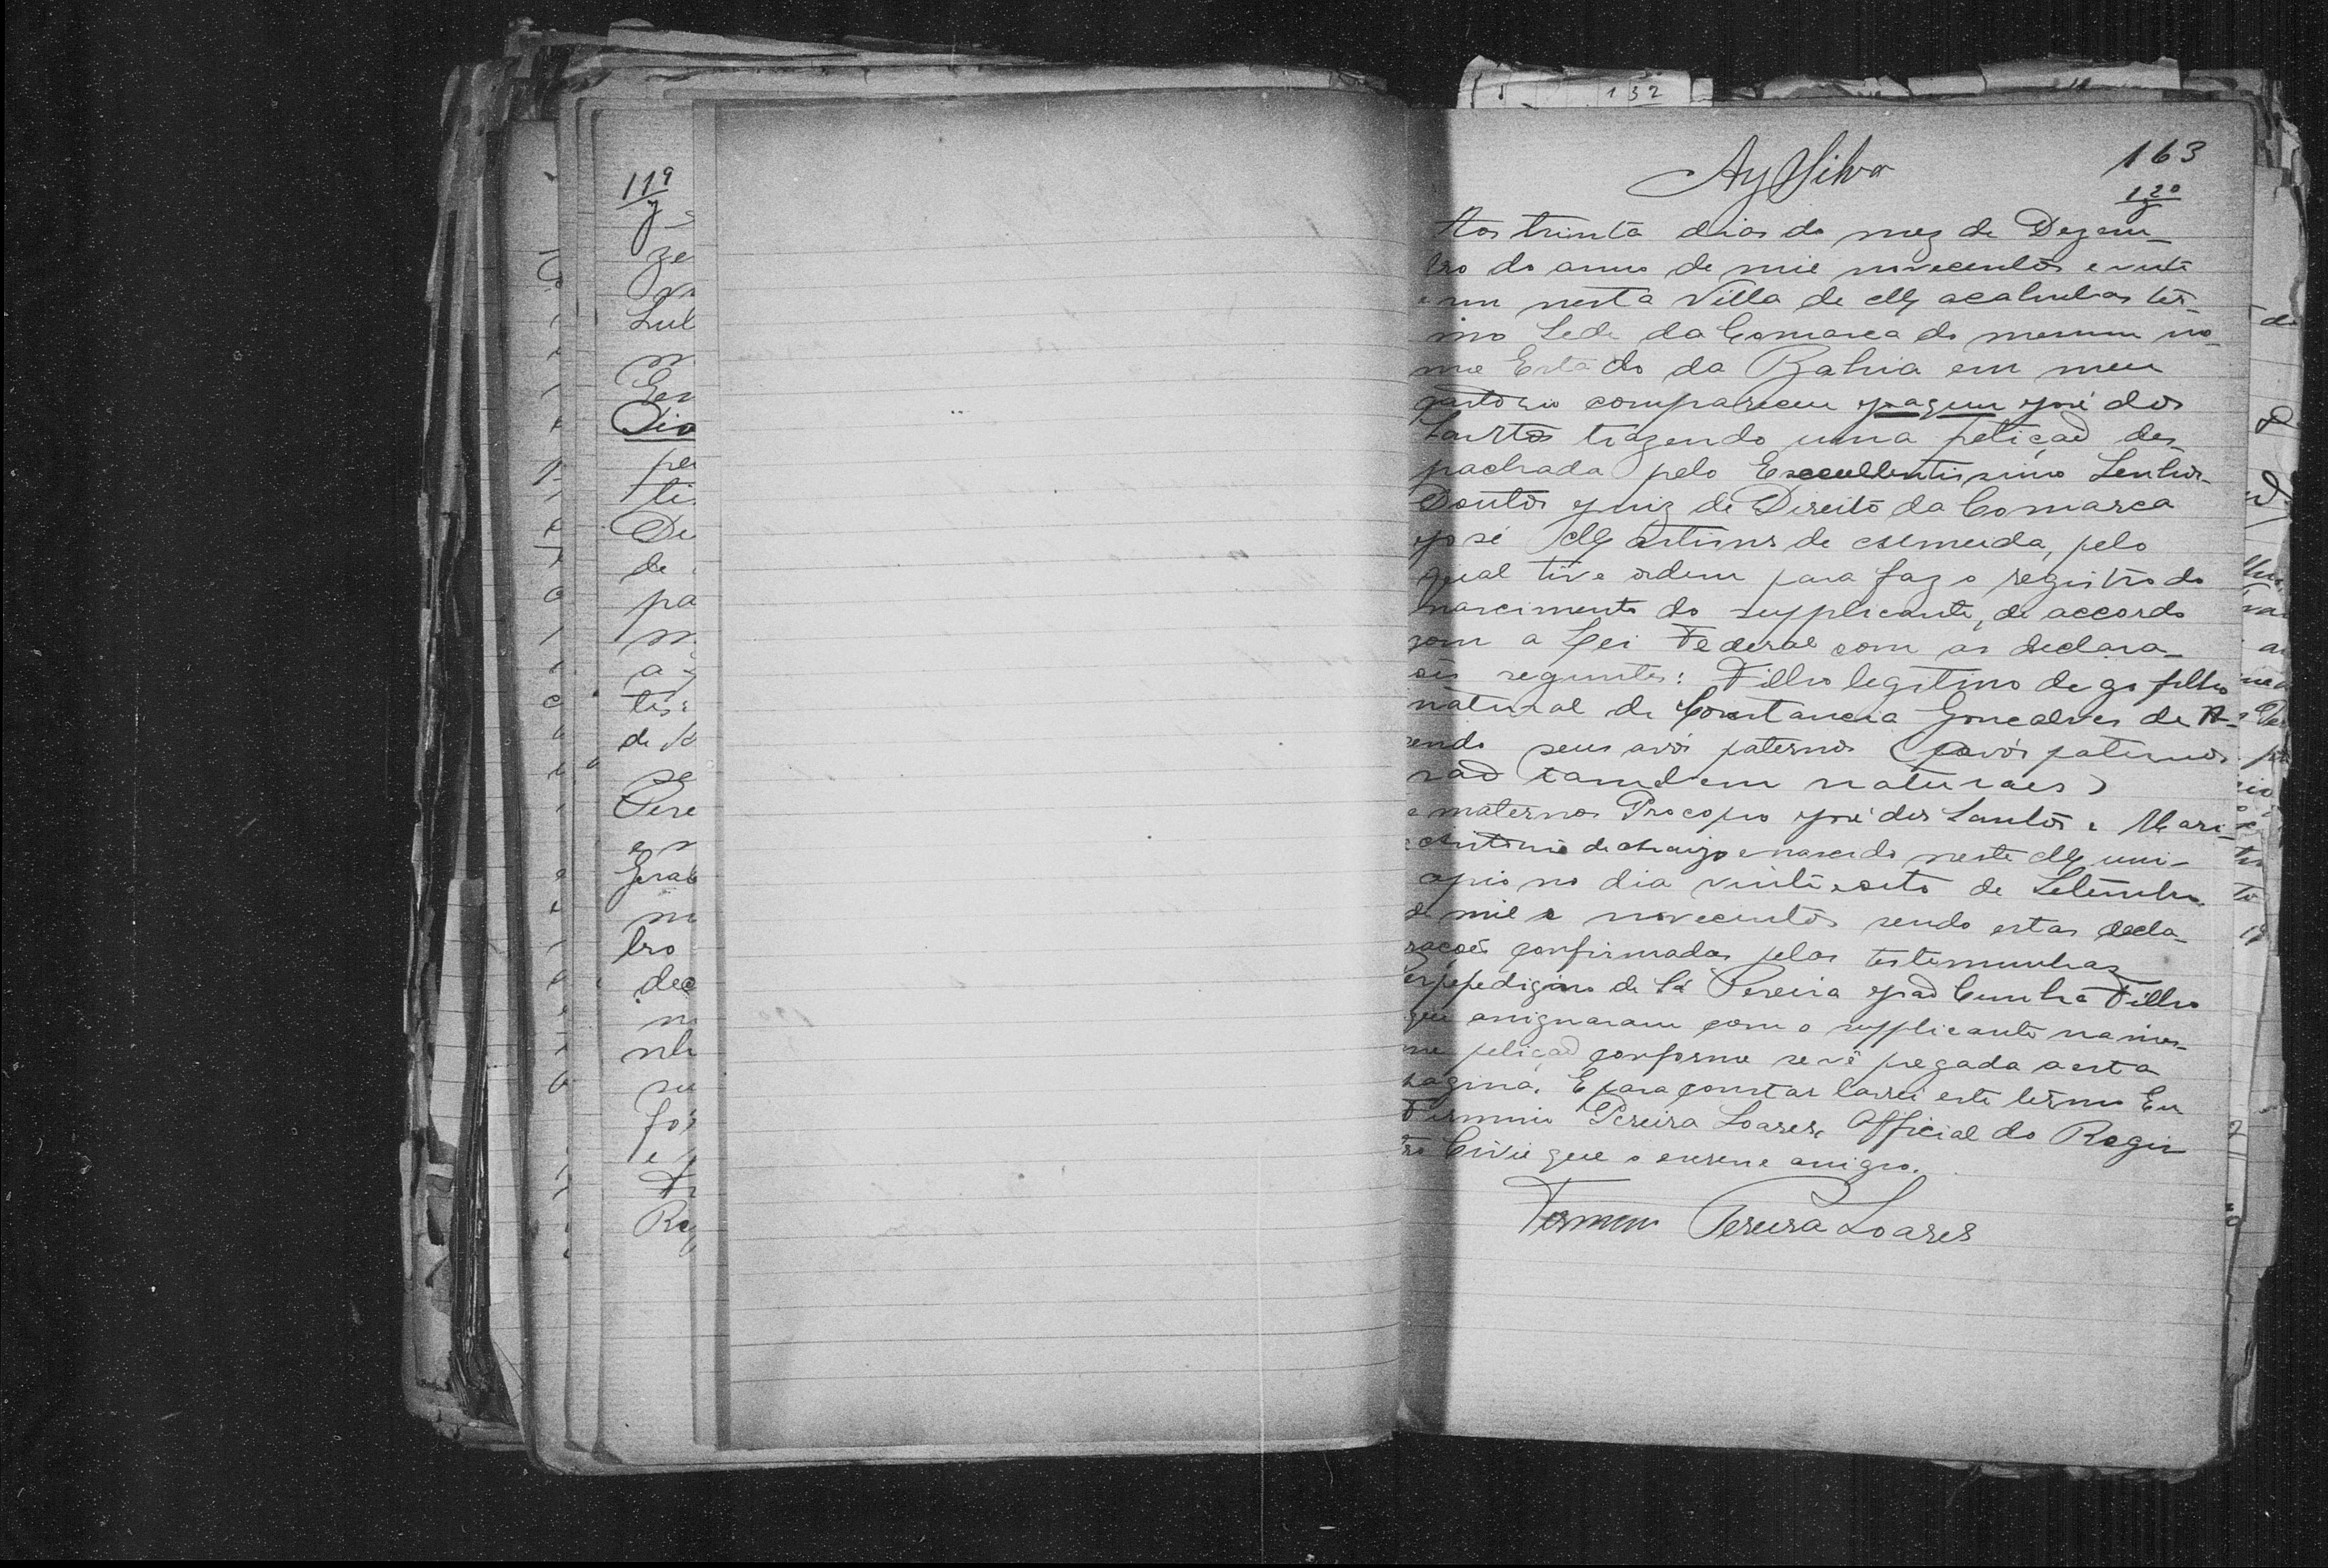 132
119
ze
Lul
Ger
Dio
per
ti
De
de
pa
m
a
tes
de
se
Pere
Geral
m
bro
dec
n
nh
su
for
e
Fi
Reg
AySilva
163
120
Aos trinta dias do mez de Dezem-
bro do anno de mil novecentos e vinte
e um nesta Villa de Macahubas ter-
mo Sede da Comarca do mesmo no-
me Estado da Bahia em meu
cartorio compareceu Joazim José dos
Santos trazendo uma petição des-
pachada pelo Excellentissimo Senhor
Doutor Juiz de Direito da Comarca
José Martins de Almeida, pelo
qual tive ordem para faz o registro do
nascimento do supplicante, de accordo
com a Lei Federal com as declara-
ões seguintes: Filho legitimo digo filho
natural de Constancia Gonçalves de A-
sendo seus avós paternos (avós paternos
são tambem naturaes)
e maternos Procopio José dos Santos e Mari-
Antonia de Araujo e nascido neste Muni-
cipio no dia vinte e sete de Setembro
de mil e novecentos sendo estas decla-
rações confirmadas pelas testemunhas
de Sá Pereira João Cunha Filho
que assignaram com o supplicante na mes-
ma petição conforme se vê pregada a esta
pagina. E para constar lavrei este termo Eu
Firmino Pereira Soares, Official do Regis
tro Civil que o escrevi e assigno.
Firmino Pereira Soares